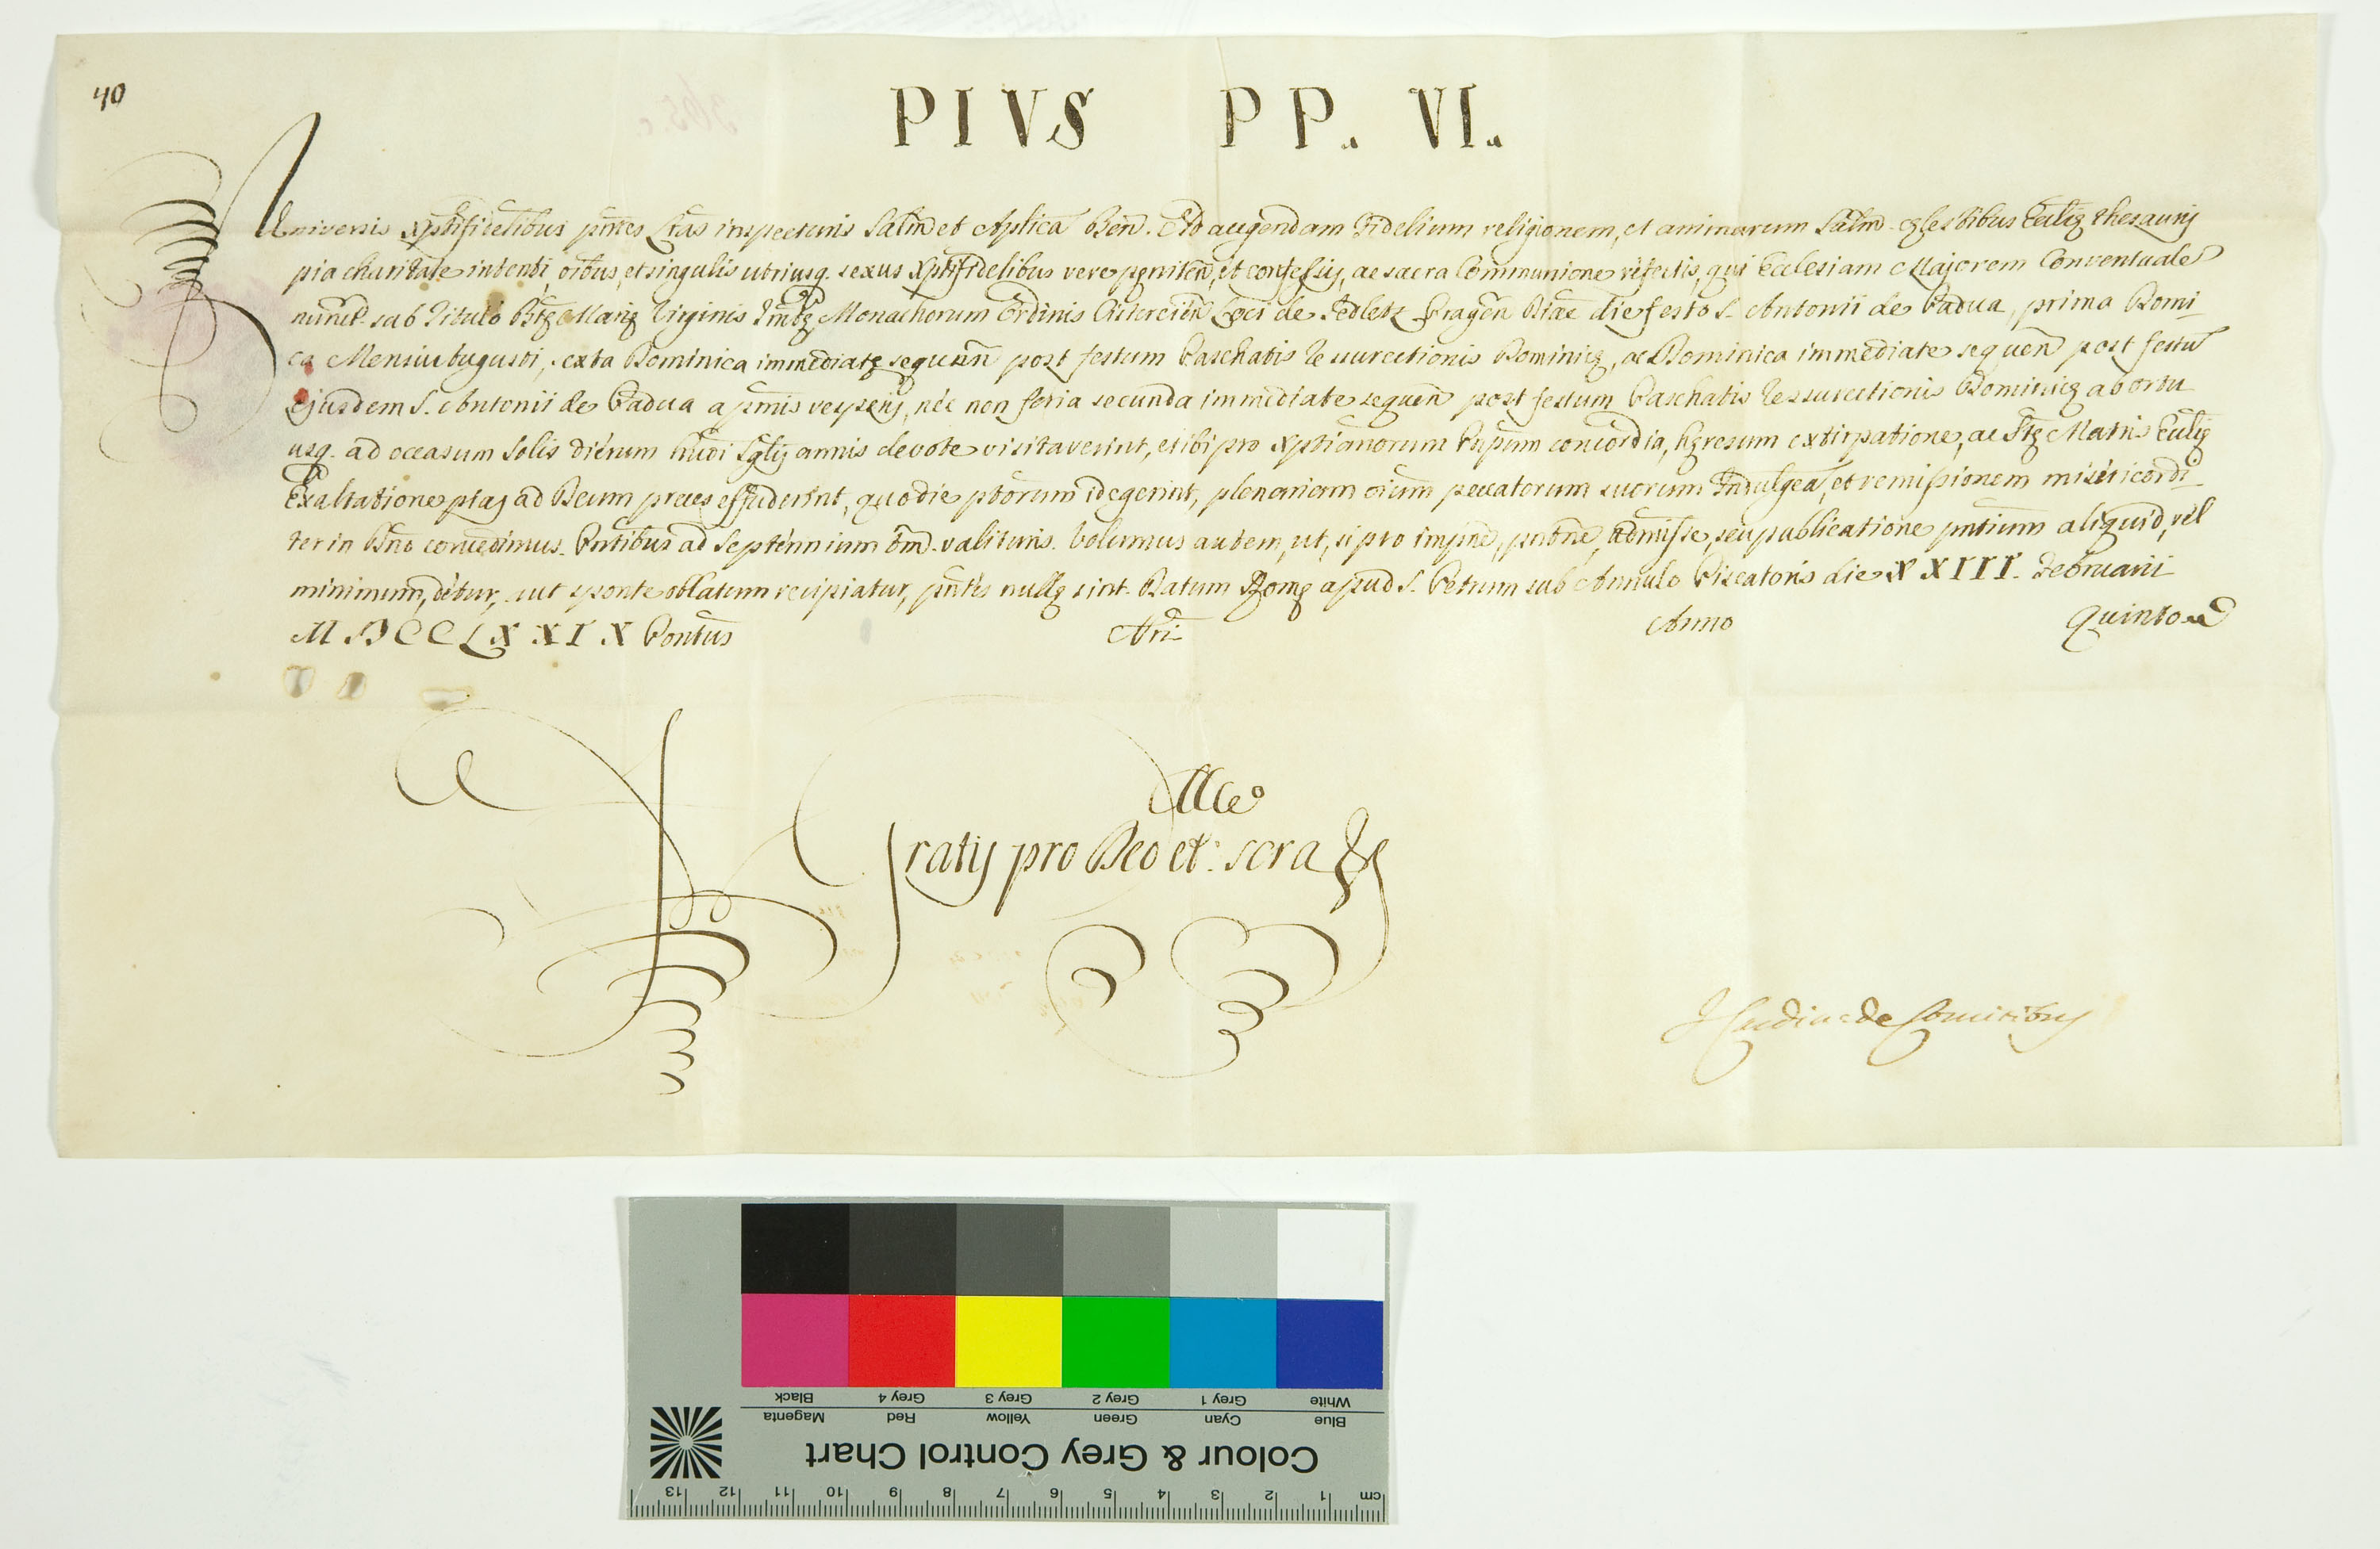 40
PIVS PP. VI.
Universis Xpstifidelibus pntes Lras inspecturis Salm̄ et Aplicā Ben̄. Ad augendam Fidelium religionem, et animarum Salm̄. cęlestibus Ecclię thesauris
pia charitate intenti, oībus, et singulis utriusq. sexus Xptifidelibus vere pęniten̄, et confessis, ac sacra Communione refectis, qui Ecclesiam Majorem Conventuale
nuncup. sub Titulo Btę Marię Virginis Monachorum Ordinis Cistercien̄ Loci de Sedletz Pragen̄ Diæc die festo S. Antonii de Padua, prima Domi-
ca Mensis Augusti, sexta Dominica immediatę sequen̄ post festum Paschatis Ressurectionis Dominicę, ac Dominica immediate sequen̄ post festū
ejusdem S. Antonii de Padua a pmis vesperis, nec non feria secunda immediate sequen̄ post festum Paschatis Ressurectionis Dominicę ab ortu
usq. ad occasum Solis dierum hmōi Sglis annis devote visitaverint, et ibi pro Xptianorum Pnpum concordia, hęresum extirpatione, ac Stę Matris Ecclię
Exaltatione pias ad Deum preces effuderint, quo die pt̄orum id egerint, plenariam oīum peccatorum suorum Indulgeā, et remissionem misericordi-
ter in Dn̄o concedimus. Pntibus ad Septennium tm̄. valituris. Volumus autem, ut, si pro impne, pntne, admisse, seu publicatione pntium aliquid, vel
minimum, detur, aut sponte oblatum recipiatur, pntes nullę sint. Datum Romę apud S. Petrum sub Annulo Piscatoris die XXIII. Februarii
MDCCLXXIX Pontus Nri Anno Quinto
Gratis pro Deo et scra
de Comitibus
Colour & Grey Control Chart
Blue Cyan Green Yellow Red Magenta
White Grey 1 Grey 2 Grey 3 Grey 4 Black
cm 1 2 3 4 5 6 7 8 9 10 11 12 13